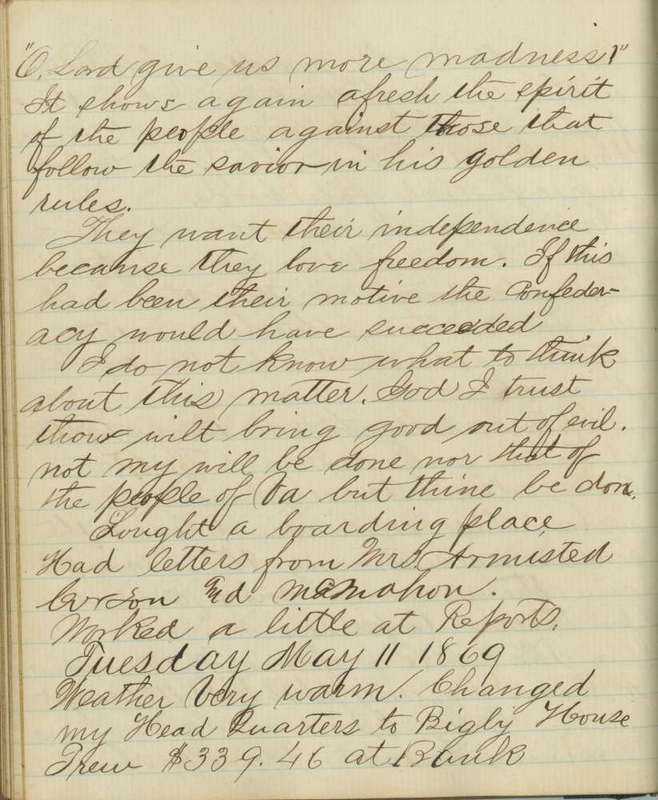 "O, Lord give us more madness!"
It shows again afresh the spirit
of the people against those that
follow the savior in his golden
rules.
They want their independence
because they love freedom. If this
had been their motive the Confeder-
acy would have succeeded.
I do not know what to think
about this matter. God I trust
thou wilt bring good out of evil.
not my will be done nor that of
the people of Va but thine be done.
Sought a boarding place
Had letters from Mrs. Armisted
Ed McMahon.
Worked a little at Reports.
Tuesday May 11 1869
Weather Very warm. Changed
my Head Quarters to Bigly House
Drew $339.46 at Bank